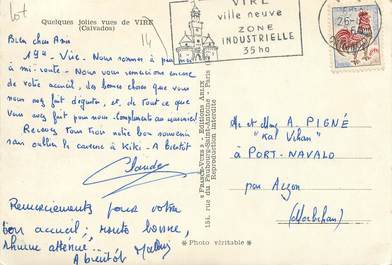 lot
Quelques jolies vues de VIRE
(Calvados)
14
Bien chers Amis
19h - Vire. Nous sommes à peu près
à mi-route. Nous vous remercions encore
de votre accueil, des bonnes choses que vous
nous avez fait déguster, et de tout ce que
vous avez fait pour nous. Compliments au
Recevez tous trois notre bon souvenir
sans oublier la caresse à Kiki. A bientôt
Claude
Remerciements pour votre
bon accueil; route bonne,
rhume atténué...
A bientôt
"FRANCE-VUES" - Editions ARTIX - Paris
184, rue du Faubourg-Saint-Antoine
Reproduction interdite
"Photo véritable"
VIRE
ville neuve
ZONE
INDUSTRIELLE
35ha
26-
CALVADOS
Mr et Mme A. PIGNÉ
"Kal Vihan"
à PORT-NAVALO
par Arzon
(Morbihan)